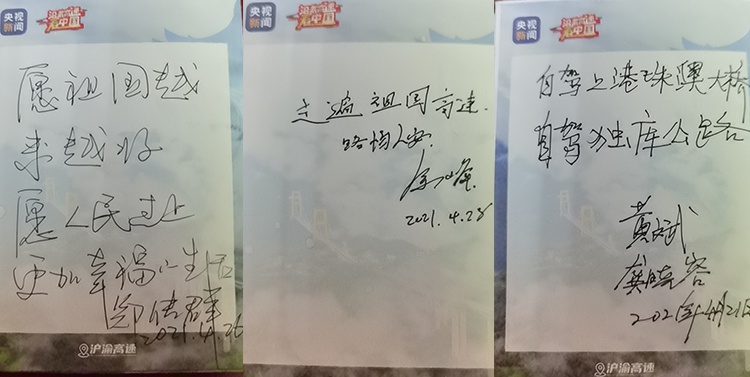 央视
新闻
沿着高速
看中国
愿祖国越
来越好
愿人民过上
更加幸福的生活
郑传群
2021.4.26
沪渝高速
走遍祖国高速
2021.4.28
央视
新闻
沿着高速
看中国
自驾上港珠澳大桥
自驾独库公路
黄斌
2021年4月21日
沪渝高速